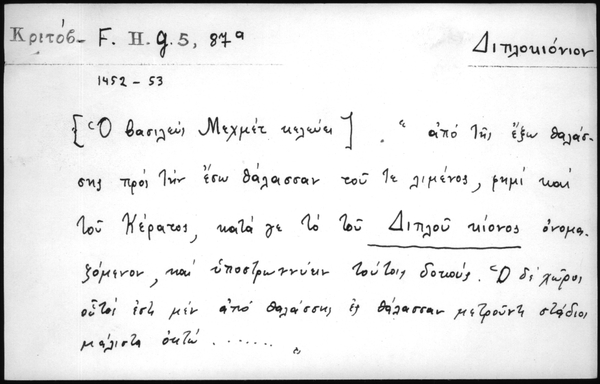 Κριτόβ- F. H. g. 5, 87ᵃ
Διπλοκιόνιον
1452 - 53
[Ὁ βασιλεύς Μεχμέτ κελεύει] . " ἀπό τῆς ἔξω θαλάσ-
σης πρός τήν ἔσω θάλασσαν τοῦ τε λιμένος, φημί καί
τοῦ Κέρατος, κατά γε τό τοῦ Διπλοῦ κίονος ὀνομα-
ζόμενον, καί ὑποστρωννύειν τούτοις δοκούς. Ὁ δέ χῶρος
οὗτός ἐστι μέν ἀπό θαλάσσης ἐς θάλασσαν μετροῦντι στάδιοι
μάλιστα ὀκτώ ....... "